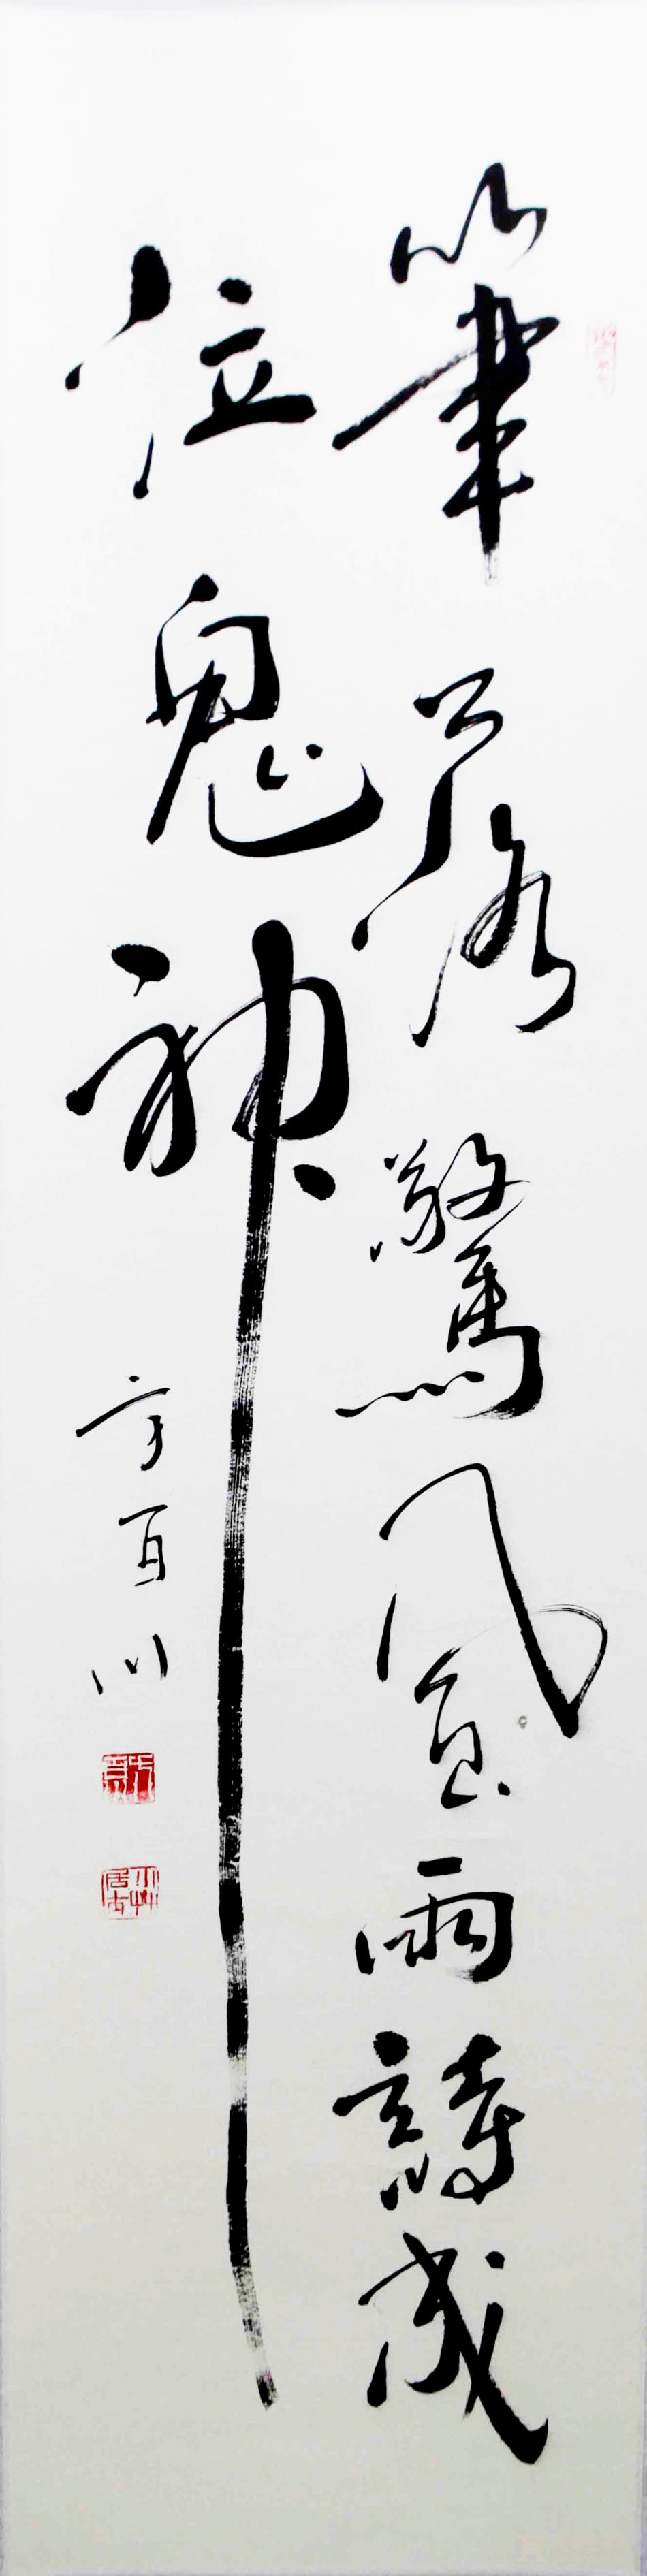 筆落驚風雨詩成
泣鬼神
方百川